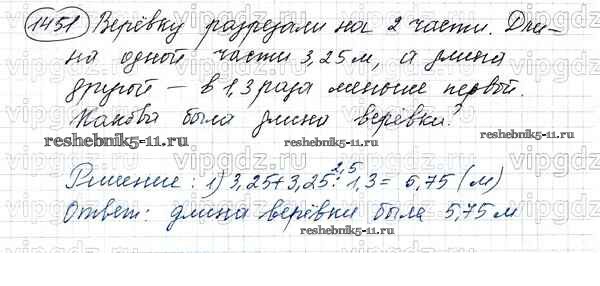 1451 Верёвку разрезали на 2 части. Дли-
на одной части 3,25 м, а длина
другой – в 1,3 раза меньше первой.
Какова была длина верёвки?
reshebnik5-11.ru
reshebnik5-11.ru
2,5
Решение: 1) 3,25+3,25:1,3= 5,75 (м)
Ответ: длина верёвки была 5,75 м
reshebnik5-11.ru